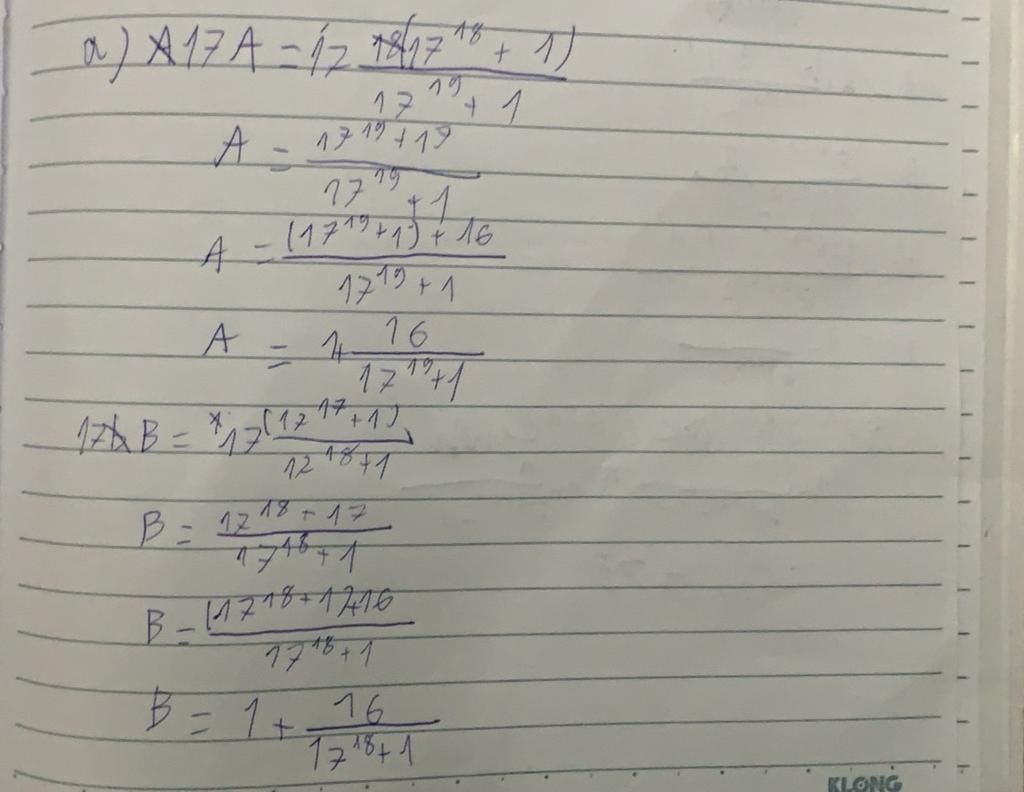 a) 17A = 17 (17^18 + 1) / 17^19 + 1
A = 17^19 + 17 / 17^19 + 1
A = (17^19 + 1) + 16 / 17^19 + 1
A = 1 + 16 / 17^19 + 1
17B = 17 (17^17 + 1) / 17^18 + 1
B = 17^18 + 17 / 17^18 + 1
B = (17^18 + 1) + 16 / 17^18 + 1
B = 1 + 16 / 17^18 + 1
KLONG